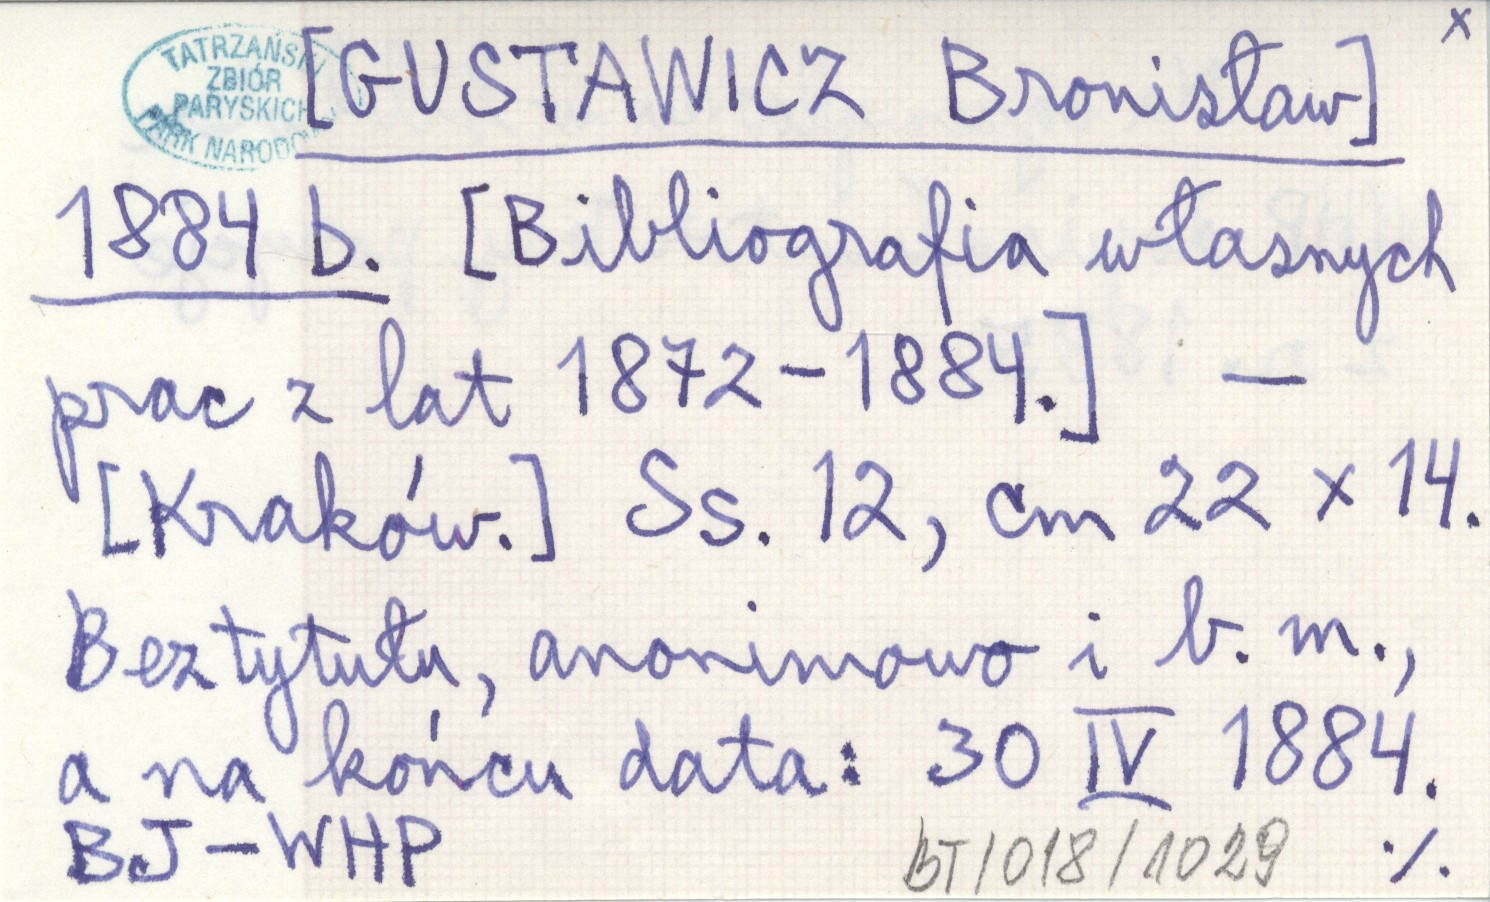 x
TATRZAŃSKI
ZBIÓR
PARYSKICH
PARK NARODOWY
[GUSTAWICZ Bronisław]
1884 b. [Bibliografia własnych
prac z lat 1872-1884.] —
[Kraków.] Ss. 12, cm 22 x 14.
Bez tytułu, anonimowo i b. m.,
a na końcu data: 30 IV 1884.
BJ-WHP
BT/018/1029 ·/.